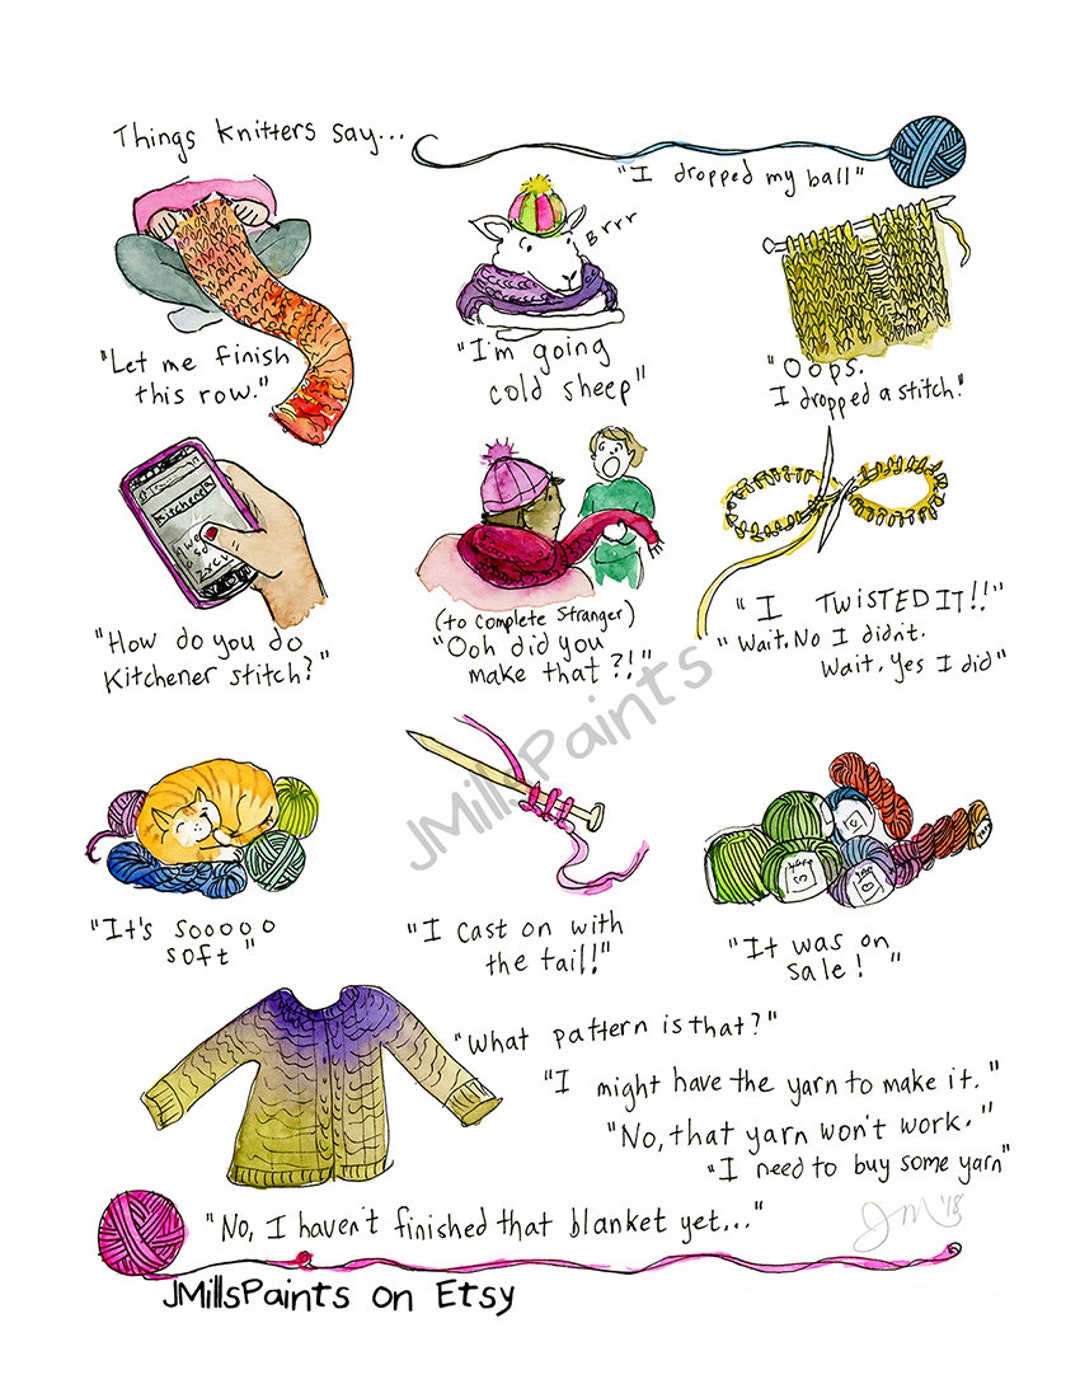 Things Knitters say...
"I dropped my ball"
Brrr
"Let me finish
this row."
"I'm going
cold sheep"
"Oops.
I dropped a stitch!"
Kitchene
"How do you do
Kitchener stitch?"
(to complete stranger)
"Ooh did you
make that?!"
"I TWISTED IT!!"
"Wait. No I didn't.
Wait. Yes I did"
JMillsPaints
"It's sooooo
soft"
"I cast on with
the tail!"
yarn
"It was on
sale!"
"What pattern is that?"
"I might have the yarn to make it."
"No, that yarn won't work."
"I need to buy some yarn"
"No, I haven't finished that blanket yet..."
JM '18
JMillsPaints on Etsy